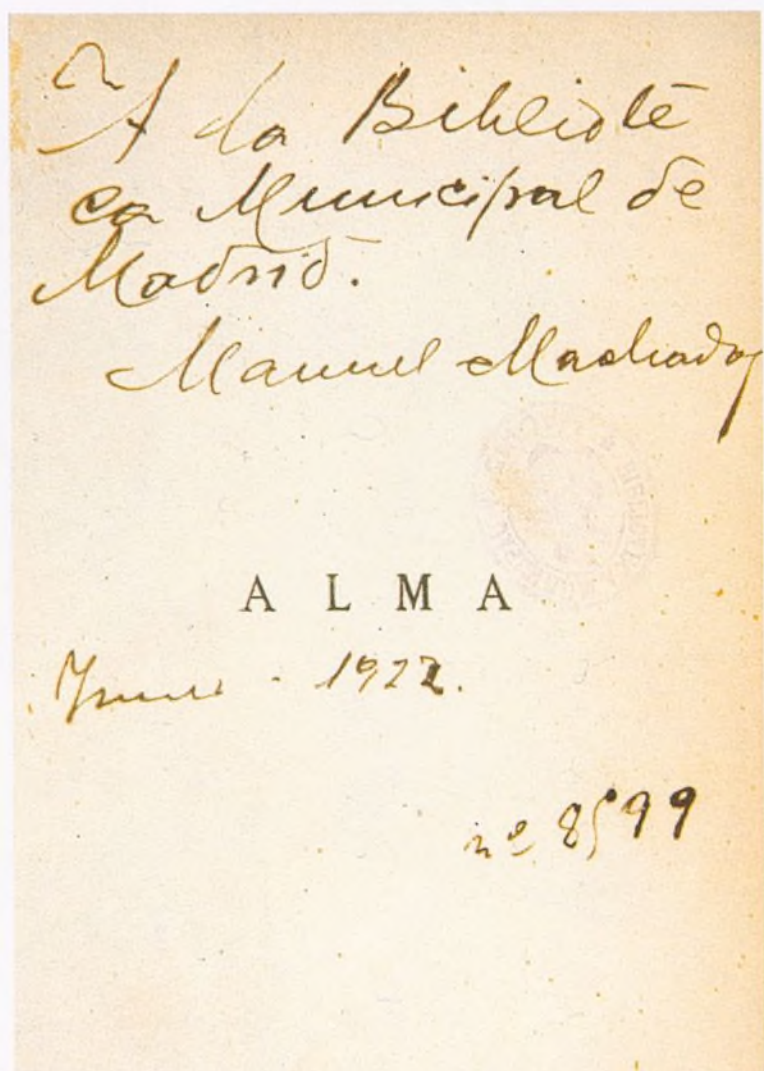 A la Bibliote
ca Municipal de
Madrid.
Manuel Machado
ALMA
1922.
nº 8599